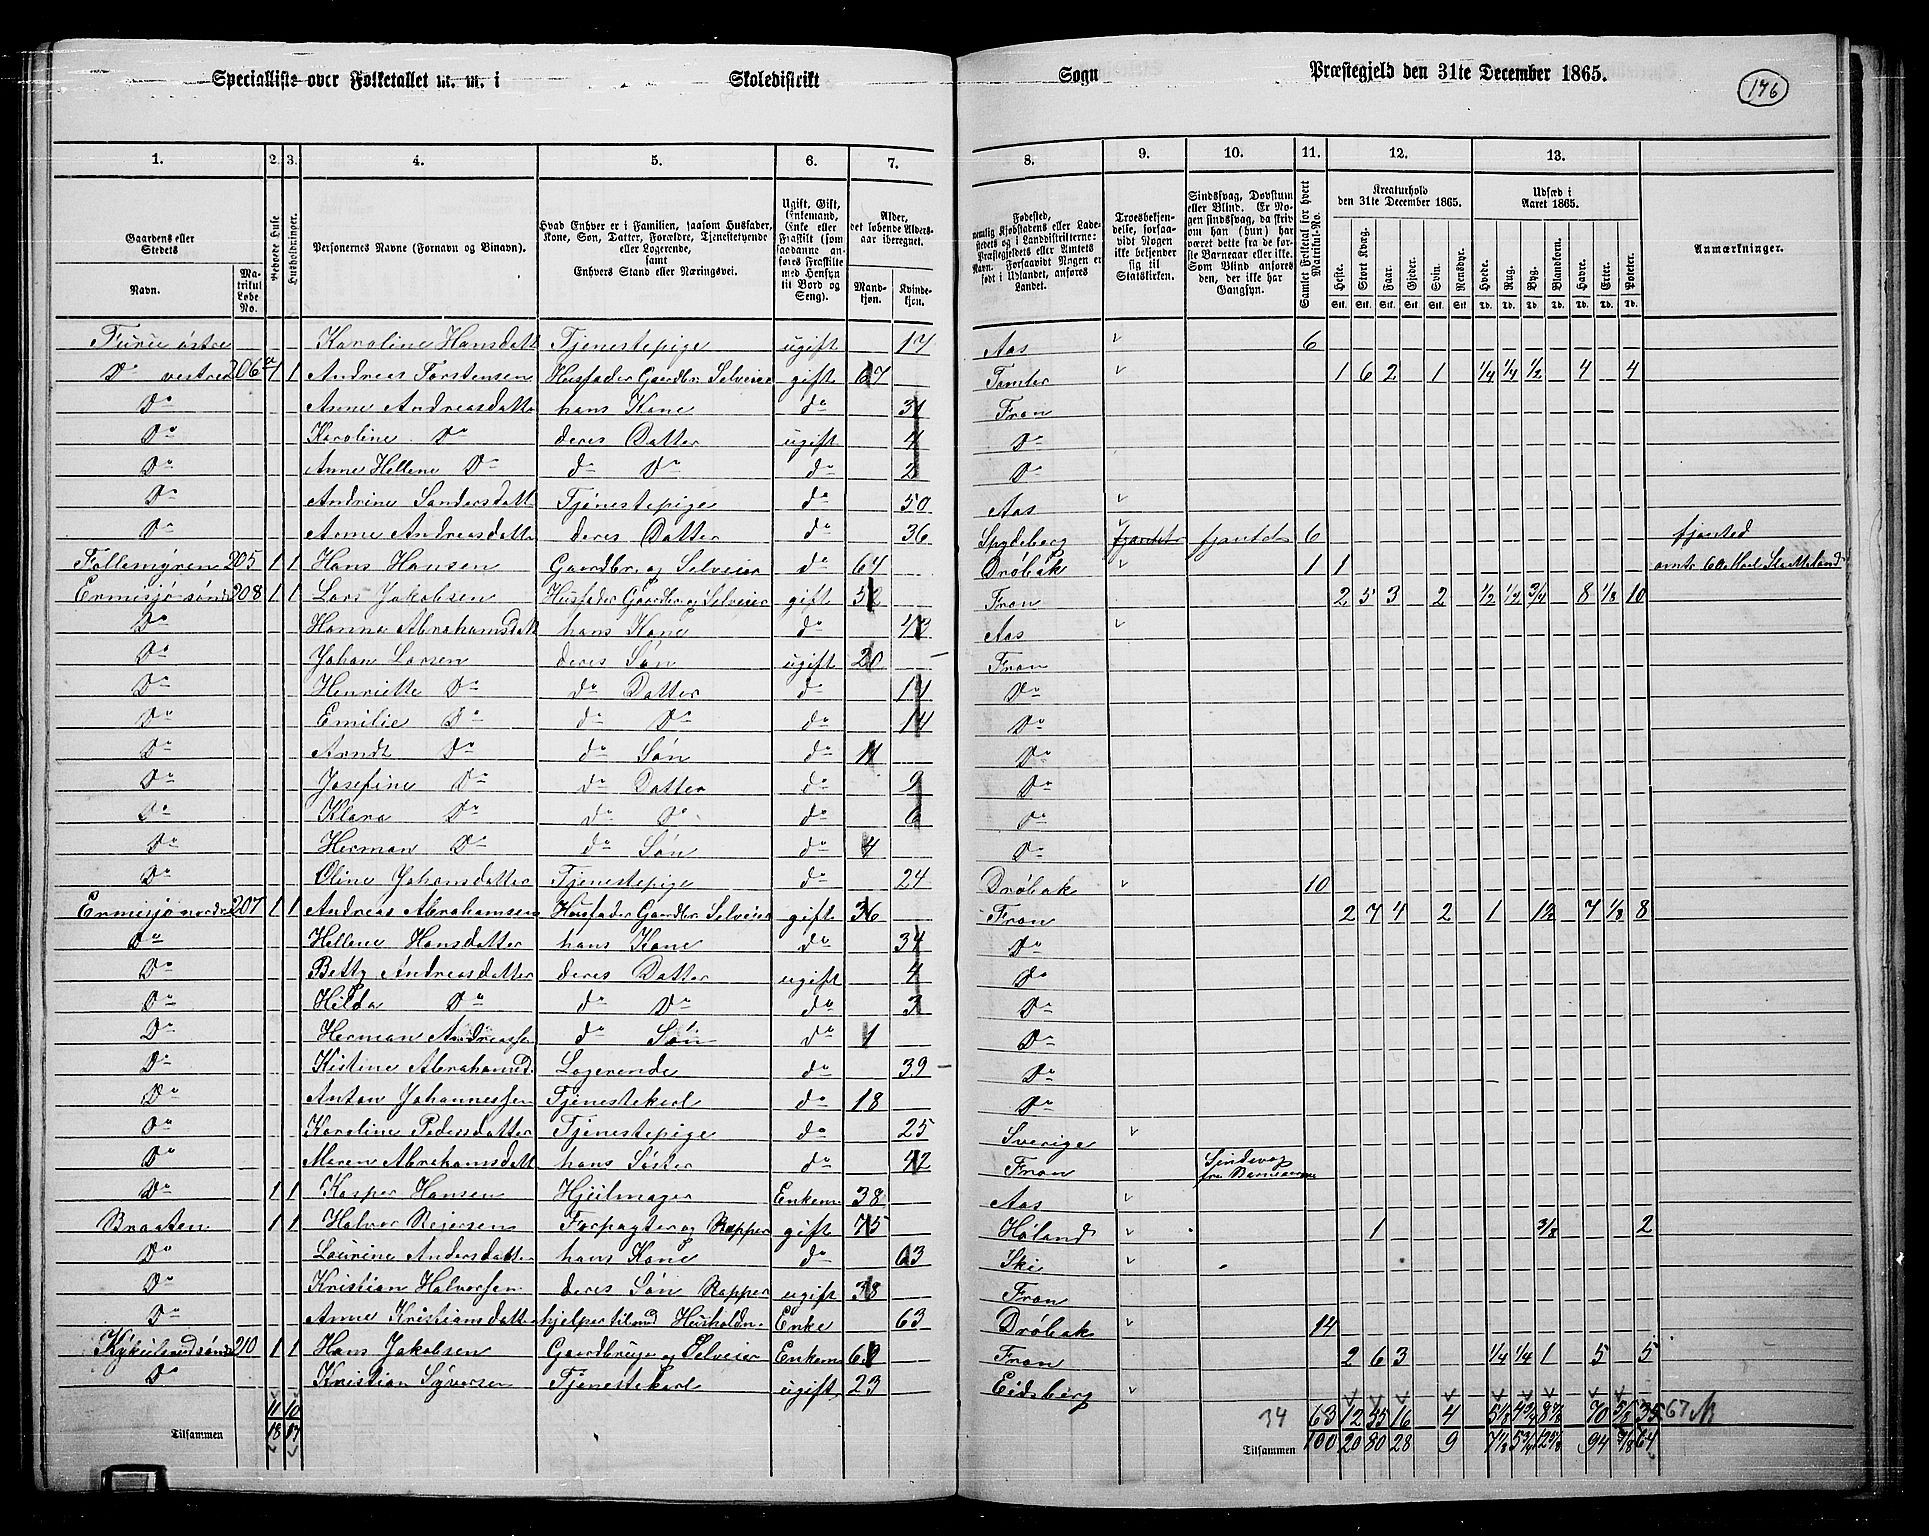 Specialliste over Folketallet m. m. i Skoledistrikt Sogn Præstegjeld den 31te December 1865. 176
1. 2. 3. 4. 5. 6. 7. 8. 9. 10. 11. 12. 13.
Gaardens eller Stedets Navn.
Matrikul Løbe No.
Beboede Huse
Husholdninger.
Personernes Navne (Fornavn og Binavn).
Hvad Enhver er i Familien, saasom Husfader, Kone, Søn, Datter, Forældre, Tjenestetyende eller Logerende, samt Enhvers Stand eller Næringsvei.
Ugift, Gift, Enkemand, Enke eller Fraskilt (som saadanne anføres Fraskilte med Hensyn til Bord og Seng).
Alder, det løbende Aldersaar iberegnet.
Mandkjøn. Kvindekjøn.
Fødested, nemlig Kjøbstadens eller Ladestedets og i Landdistrikterne: Præstegjeldets eller Amtets Navn. Forsaavidt Nogen er født i Udlandet, anføres Landet.
Troesbekjendelse, forsaavidt Nogen ikke bekjender sig til Statskirken.
Sindssvag, Døvstum eller Blind. Er Nogen sindssvag, da skriv om han (hun) har været dette fra de første Barneaar eller ikke. Som Blind anføres den, der ikke har Gangsyn.
Samlet Folketal for hvert Matrikul-No.
Kreaturhold den 31te December 1865.
Heste. Stort Kvæg. Faar. Gjeder. Svin. Rensdyr.
Stk. Stk. Stk. Stk. Stk. Stk.
Udsæd i Aaret 1865.
Hvede. Rug. Byg. Blandkorn. Havre. Erter. Poteter.
Td. Td. Td. Td. Td. Td. Td.
Anmærkninger.
Furu østre Karoline Hansdatt Tjenestepige ugift 17 Aas 6
Do vestre 206a 1 1 Andreas Torstensen Husfader Gaardbr. Selveier gift 67 Tomter 1 6 2 1 1/4 1/4 1/2 4 4
Do Anne Andreasdatte hans Kone do 31 Fron
Do Karoline Do deres Datter ugift 4 Do
Do Anne Hellene Do do Do do 2 Do
Do Andrine Sandersdatt Tjenestepige do 50 Aas
Do Anne Andreasdatte deres Datter do 36 Spydeberg fjantet fjantet 6 fjanted
Follemyren 205 1 1 Hans Hansen Gaardbr. og Selveier do 64 Drøbak 1 1
Ermesjø søndr 208 1 1 Lars Jakobsen Husfader Gaardbr og Selveier gift 52 Fron 2 5 3 2 1/2 1/2 3/4 8 1/8 10
Do Hanna Abrahamsdatt hans Kone do 42 Aas
Do Johan Larsen deres Søn ugift 20 Fron
Do Henriette Do do Datter do 17 Do
Do Emilie Do do Do do 14 Do
Do Arndt Do do Søn do 11 Do
Do Josefine Do do Datter do 9 Do
Do Klara Do do Do do 6 Do
Do Herman Do do Søn do 4 Do
Do Oline Johansdatter Tjenestepige do 24 Drøbak 10
Ermesjø nordre 207 1 1 Andreas Abrahamsen Husfader Gaardbr. Selveier gift 36 Fron 2 7 4 2 1 1 1/2 7 1/8 8
Do Hellene Hansdatter hans Kone do 34 Do
Do Betty Andreasdatter deres Datter ugift 4 Do
Do Hilda Do do Do do 3 Do
Do Herman Andreassen do Søn do 1 Do
Do Kistine Abrahamsd. Logerende do 39 Do
Do Anton Johannessen Tjenestekarl do 18 Do
Do Karoline Pedersdatter Tjenestepige do 25 Sverige
Do Maren Abrahamsdatt hans Søster do 42 Fron Sindsvag fra Barneaarene
Do 1 1 Kasper Hansen Hjulmager Enkem. 38 Aas
Braaten 1 1 Halvor Rejersen Forpagter og Rapper gift 75 Høland 1 3/8 2
Do Laurine Andersdatter hans Kone do 63 Ski
Do Kristian Halvorsen deres Søn Rapper ugift 38 Fron
Do Anne Kristiansdatter hjelper til med Husholdn. Enke 63 Drøbak 14
Kykelsrud søndr 210 1 1 Hans Jakobsen Gaardbruger og Selveier Enkem 61 Fron 2 6 3 1/4 1/4 1 5 5
Do Kristian Syversen Tjenestekarl ugift 23 Eidsberg
11 10 34 63 12 55 16 4 5 1/8 4 3/4 8 7/8 70 5/8 35
Tilsammen 18 17 Tilsammen 100 20 80 28 9 7 1/8 5 3/4 12 5/8 94 7/8 64